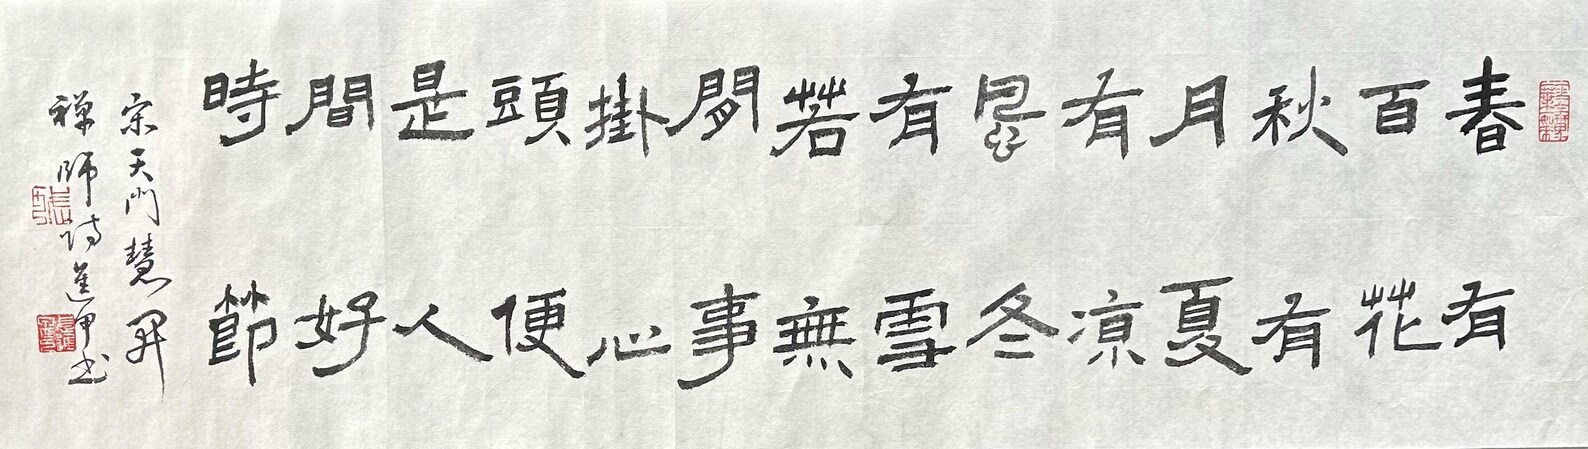 春有
百花
秋有
月夏
有凉
風冬
有雪
若無
閒事
掛心
頭便
是人
間好
時節
宋天門慧開
禪師诗進甲书